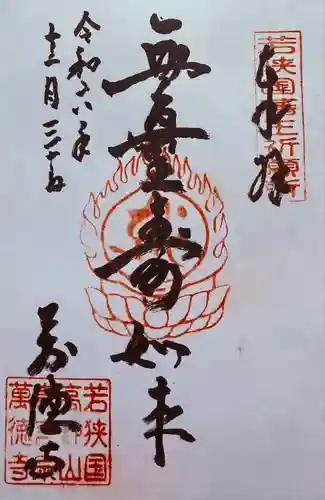 奉拝
若狭国藩主祈願所
無量寿如来
令和六年
十二月三十日
萬徳寺
若狭国
山
萬徳寺